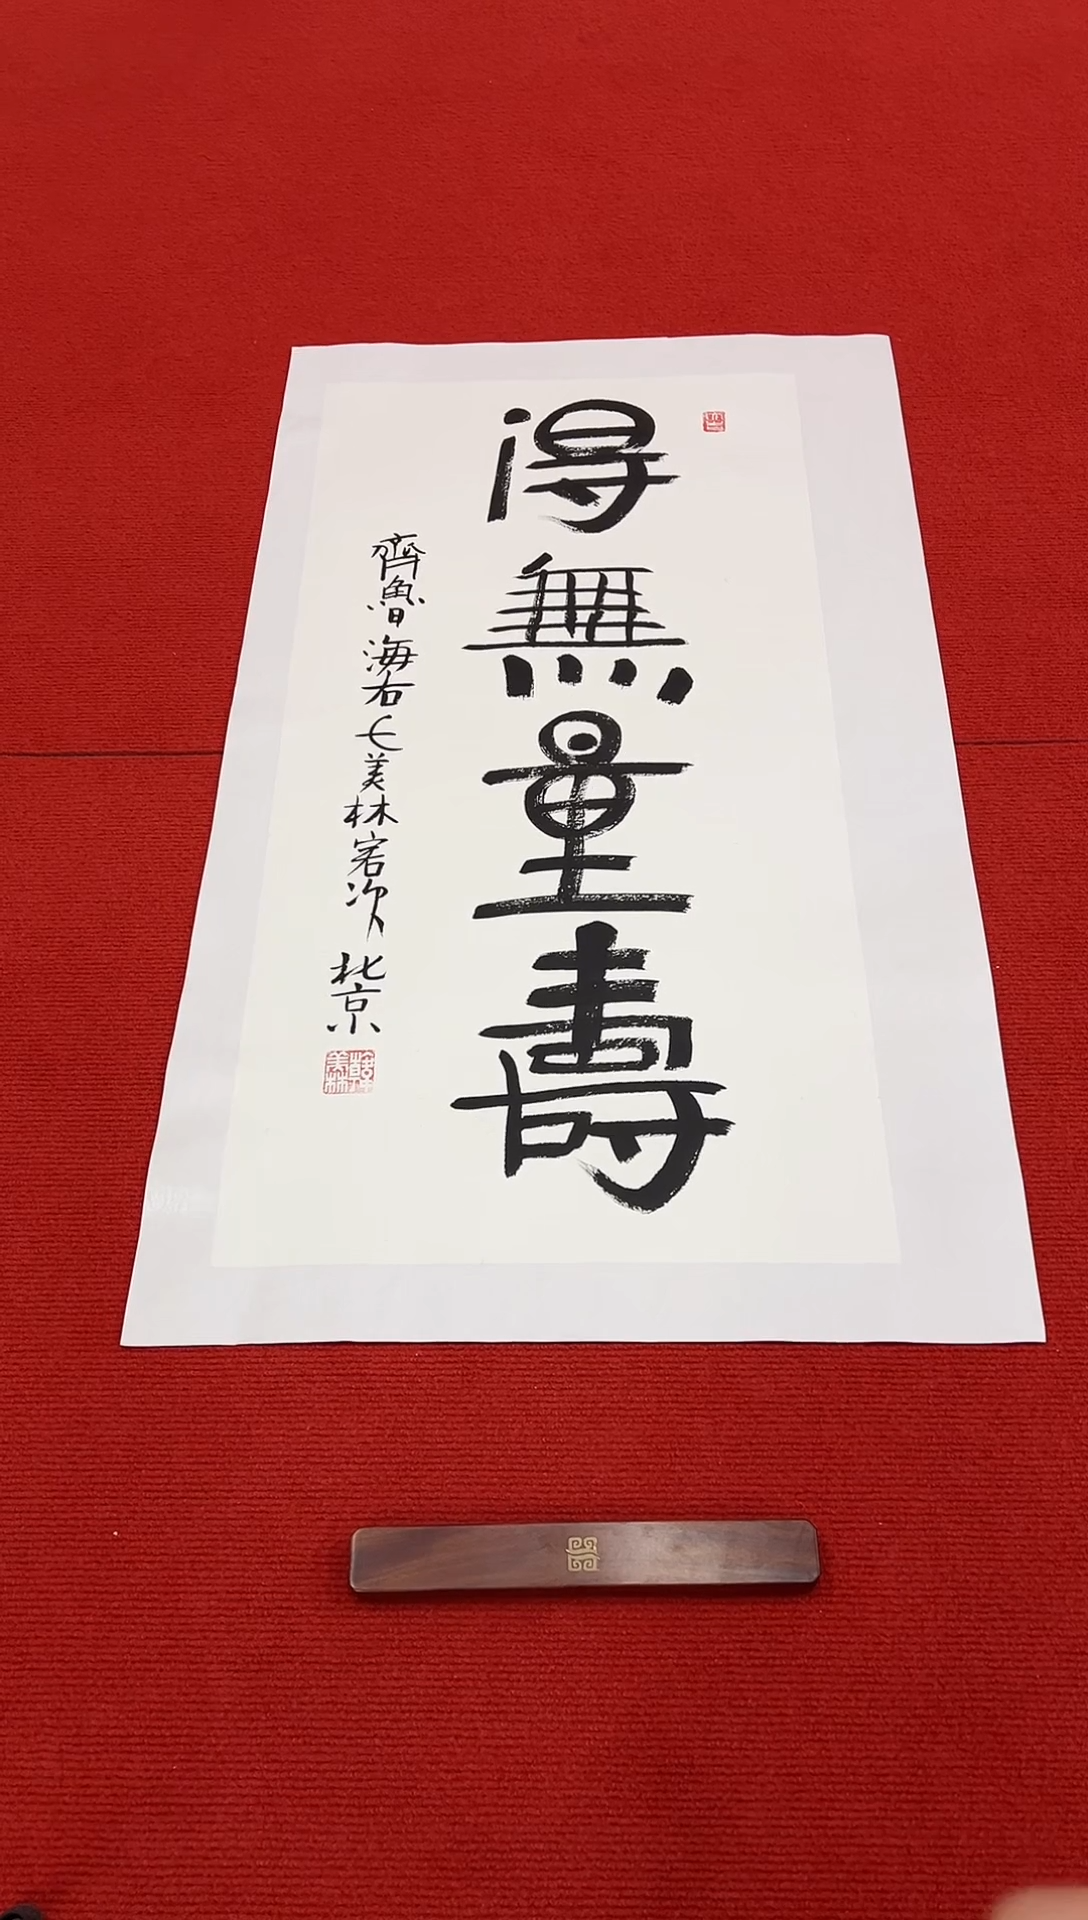 得無量壽
齊魯海右七美林客次北京